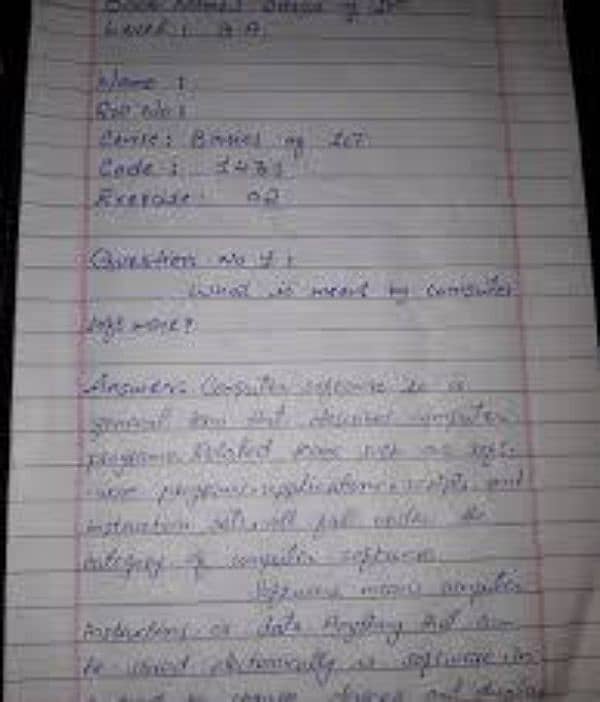 Book Name: Basics of ICT
Level: B.A.
Name:
Roll No:
Course: Basics of ICT
Code: 1431
Exercise: 02
Question No 1:
What is meant by computer
software?
Answer: Computer software is a
general term that computer
programs. Related such as soft-
ware programs, applications, scripts and
instruction sets all fall under the
category of computer software.
Software means computer
instructions or data. Anything that can
be stored electronically is software
is used to devices and display